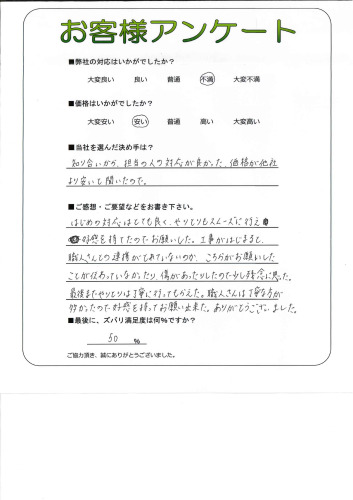 お客様アンケート
■弊社の対応はいかがでしたか？
大変良い 良い 普通 不満 大変不満
■価格はいかがでしたか？
大変安い 安い 普通 高い 大変高い
■当社を選んだ決め手は？
知り合いから、担当の人の対応が良かった、価格が他社
より安いと聞いたので。
■ご感想・ご要望などをお書き下さい。
はじめの対応はとても良く、やりとりもスムーズに行え
好感を持てたのでお願いした。工事がはじまると、
職人さんとの連携がとれていないのか、こちらがお願いした
ことが伝わっていなかったり、傷があったりしたので少し残念に思った。
最後までやりとりは丁寧に行ってもらえた。職人さんは丁寧な方が
多かったので好感を持ってお願い出来た。ありがとうございました。
■最後に、ズバリ満足度は何%ですか？
50 %
ご協力頂き、誠にありがとうございました。